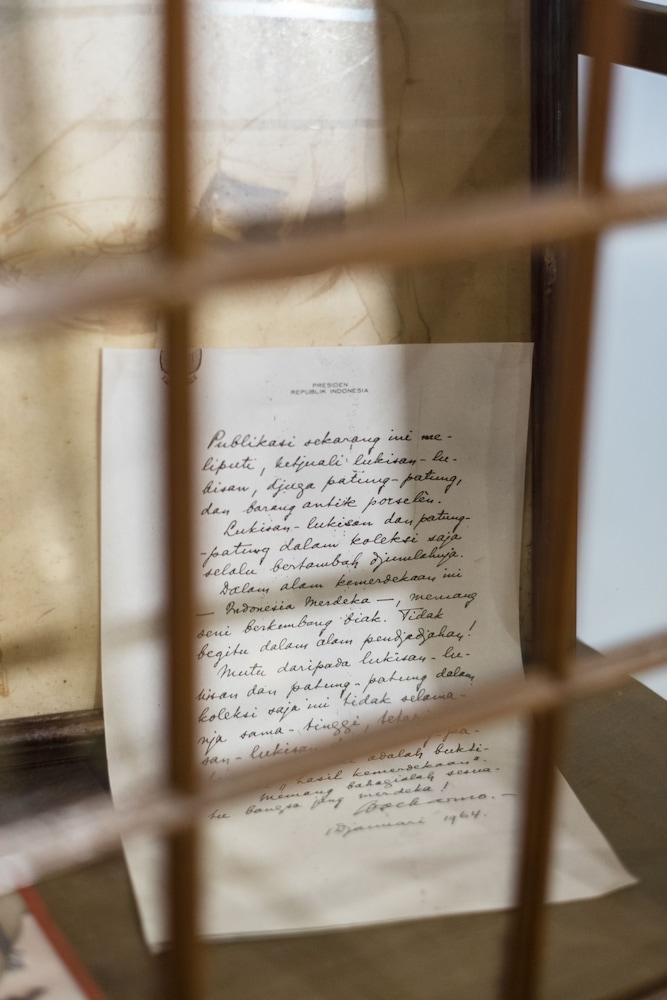 PRESIDEN
REPUBLIK INDONESIA
Publikasi sekarang ini me-
liputi, ketjuali lukisan-lu-
kisan, djuga patung-patung,
dan barang antik porselén.
Lukisan-lukisan dan patung-
-patung dalam koleksi saja
selalu bertambah djumlahnja.
Dalam alam kemerdekaan ini
— Indonesia Merdeka —, memang
seni berkembang biak. Tidak
begitu dalam alam pendjadjahan!
Mutu daripada lukisan-lu-
kisan dan patung-patung dalam
koleksi saja ini tidak selama-
nja sama-tinggi,
san-lukisan
adalah bukti-
hasil kemerdekaan".
Memang bahagialah sesua-
tu bangsa jang merdeka!
Soekarno.-
Djanuari 1964.